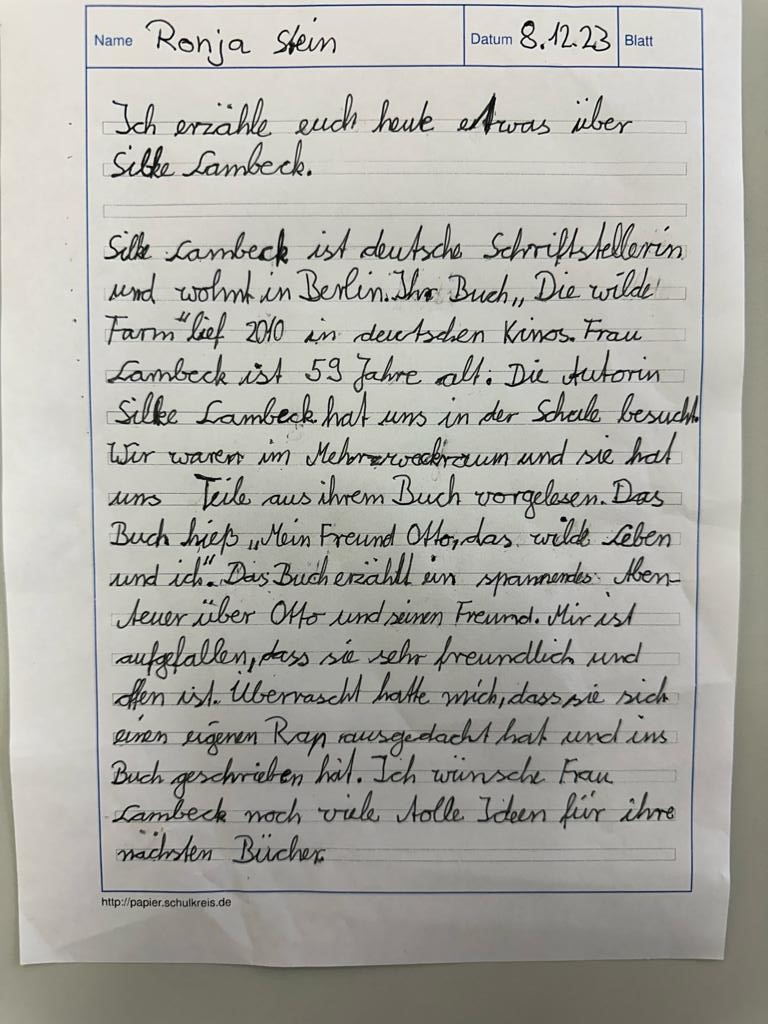 Name Ronja Stein Datum 8.12.23 Blatt
Ich erzähle euch heute etwas über
Silke Lambeck.
Silke Lambeck ist deutsche Schriftstellerin
und wohnt in Berlin. Ihr Buch „Die wilde
Farm" lief 2010 in deutschen Kinos. Frau
Lambeck ist 59 Jahre alt. Die Autorin
Silke Lambeck hat uns in der Schule besucht.
Wir waren im Mehrzweckraum und sie hat
uns Teile aus ihrem Buch vorgelesen. Das
Buch hieß „Mein Freund Otto, das wilde Leben
und ich". Das Buch erzählt ein spannendes Aben-
teuer über Otto und seinen Freund. Mir ist
aufgefallen, dass sie sehr freundlich und
offen ist. Überrascht hatte mich, dass sie sich
einen eigenen Rap ausgedacht hat und ins
Buch geschrieben hat. Ich wünsche Frau
Lambeck noch viele tolle Ideen für ihre
nächsten Bücher.
http://papier.schulkreis.de